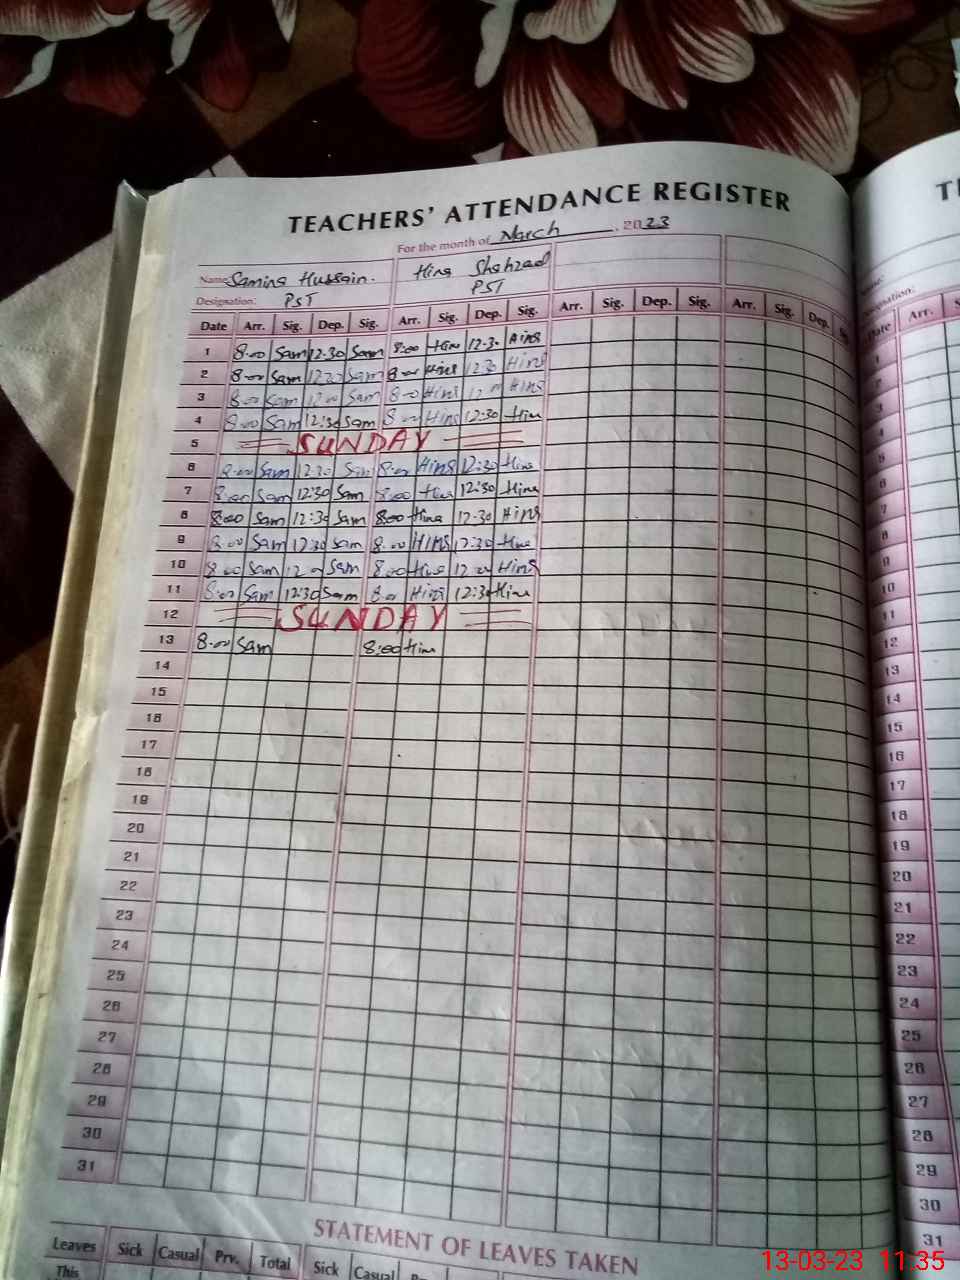 TEACHERS' ATTENDANCE REGISTER
For the month of March, 2023
Name Samina Hussain. Hina Shahzad
Designation: PST PST
Date Arr. Sig. Dep. Sig. Arr. Sig. Dep. Sig. Arr. Sig. Dep. Sig. Arr. Sig. Dep.
1 8.00 Sam 12.30 Sam 8:00 Hina 12.30 Hina
2 8.00 Sam 12.30 Sam 8.00 Hina 12.30 Hina
3 8.00 Sam 12.00 Sam 8.00 Hina Hina
4 8.00 Sam 12:30 Sam 8.00 Hina 12:30 Hina
5 SUNDAY
6 8.00 Sam 12.30 Sam 8.00 Hina 12:30 Hina
7 8.00 Sam 12:30 Sam 8.00 Hina 12:30 Hina
8 8:00 Sam 12:30 Sam 8:00 Hina 12.30 Hina
9 8.00 Sam 12.30 Sam 8.00 Hina 12:30 Hina
10 8.00 Sam Sam 8.00 Hina Hina
11 8.00 Sam 12:30 Sam 8.00 Hina 12:30 Hina
12 SUNDAY
13 8.00 Sam 8:00 Hina
14
15
16
17
18
19
20
21
22
23
24
25
26
27
28
29
30
31
STATEMENT OF LEAVES TAKEN
Leaves Sick Casual Prv. Total Sick Casual
This
Date Arr.
12
13
14
15
16
17
18
19
20
21
22
23
24
25
26
27
28
29
30
31
13-03-23 11:35